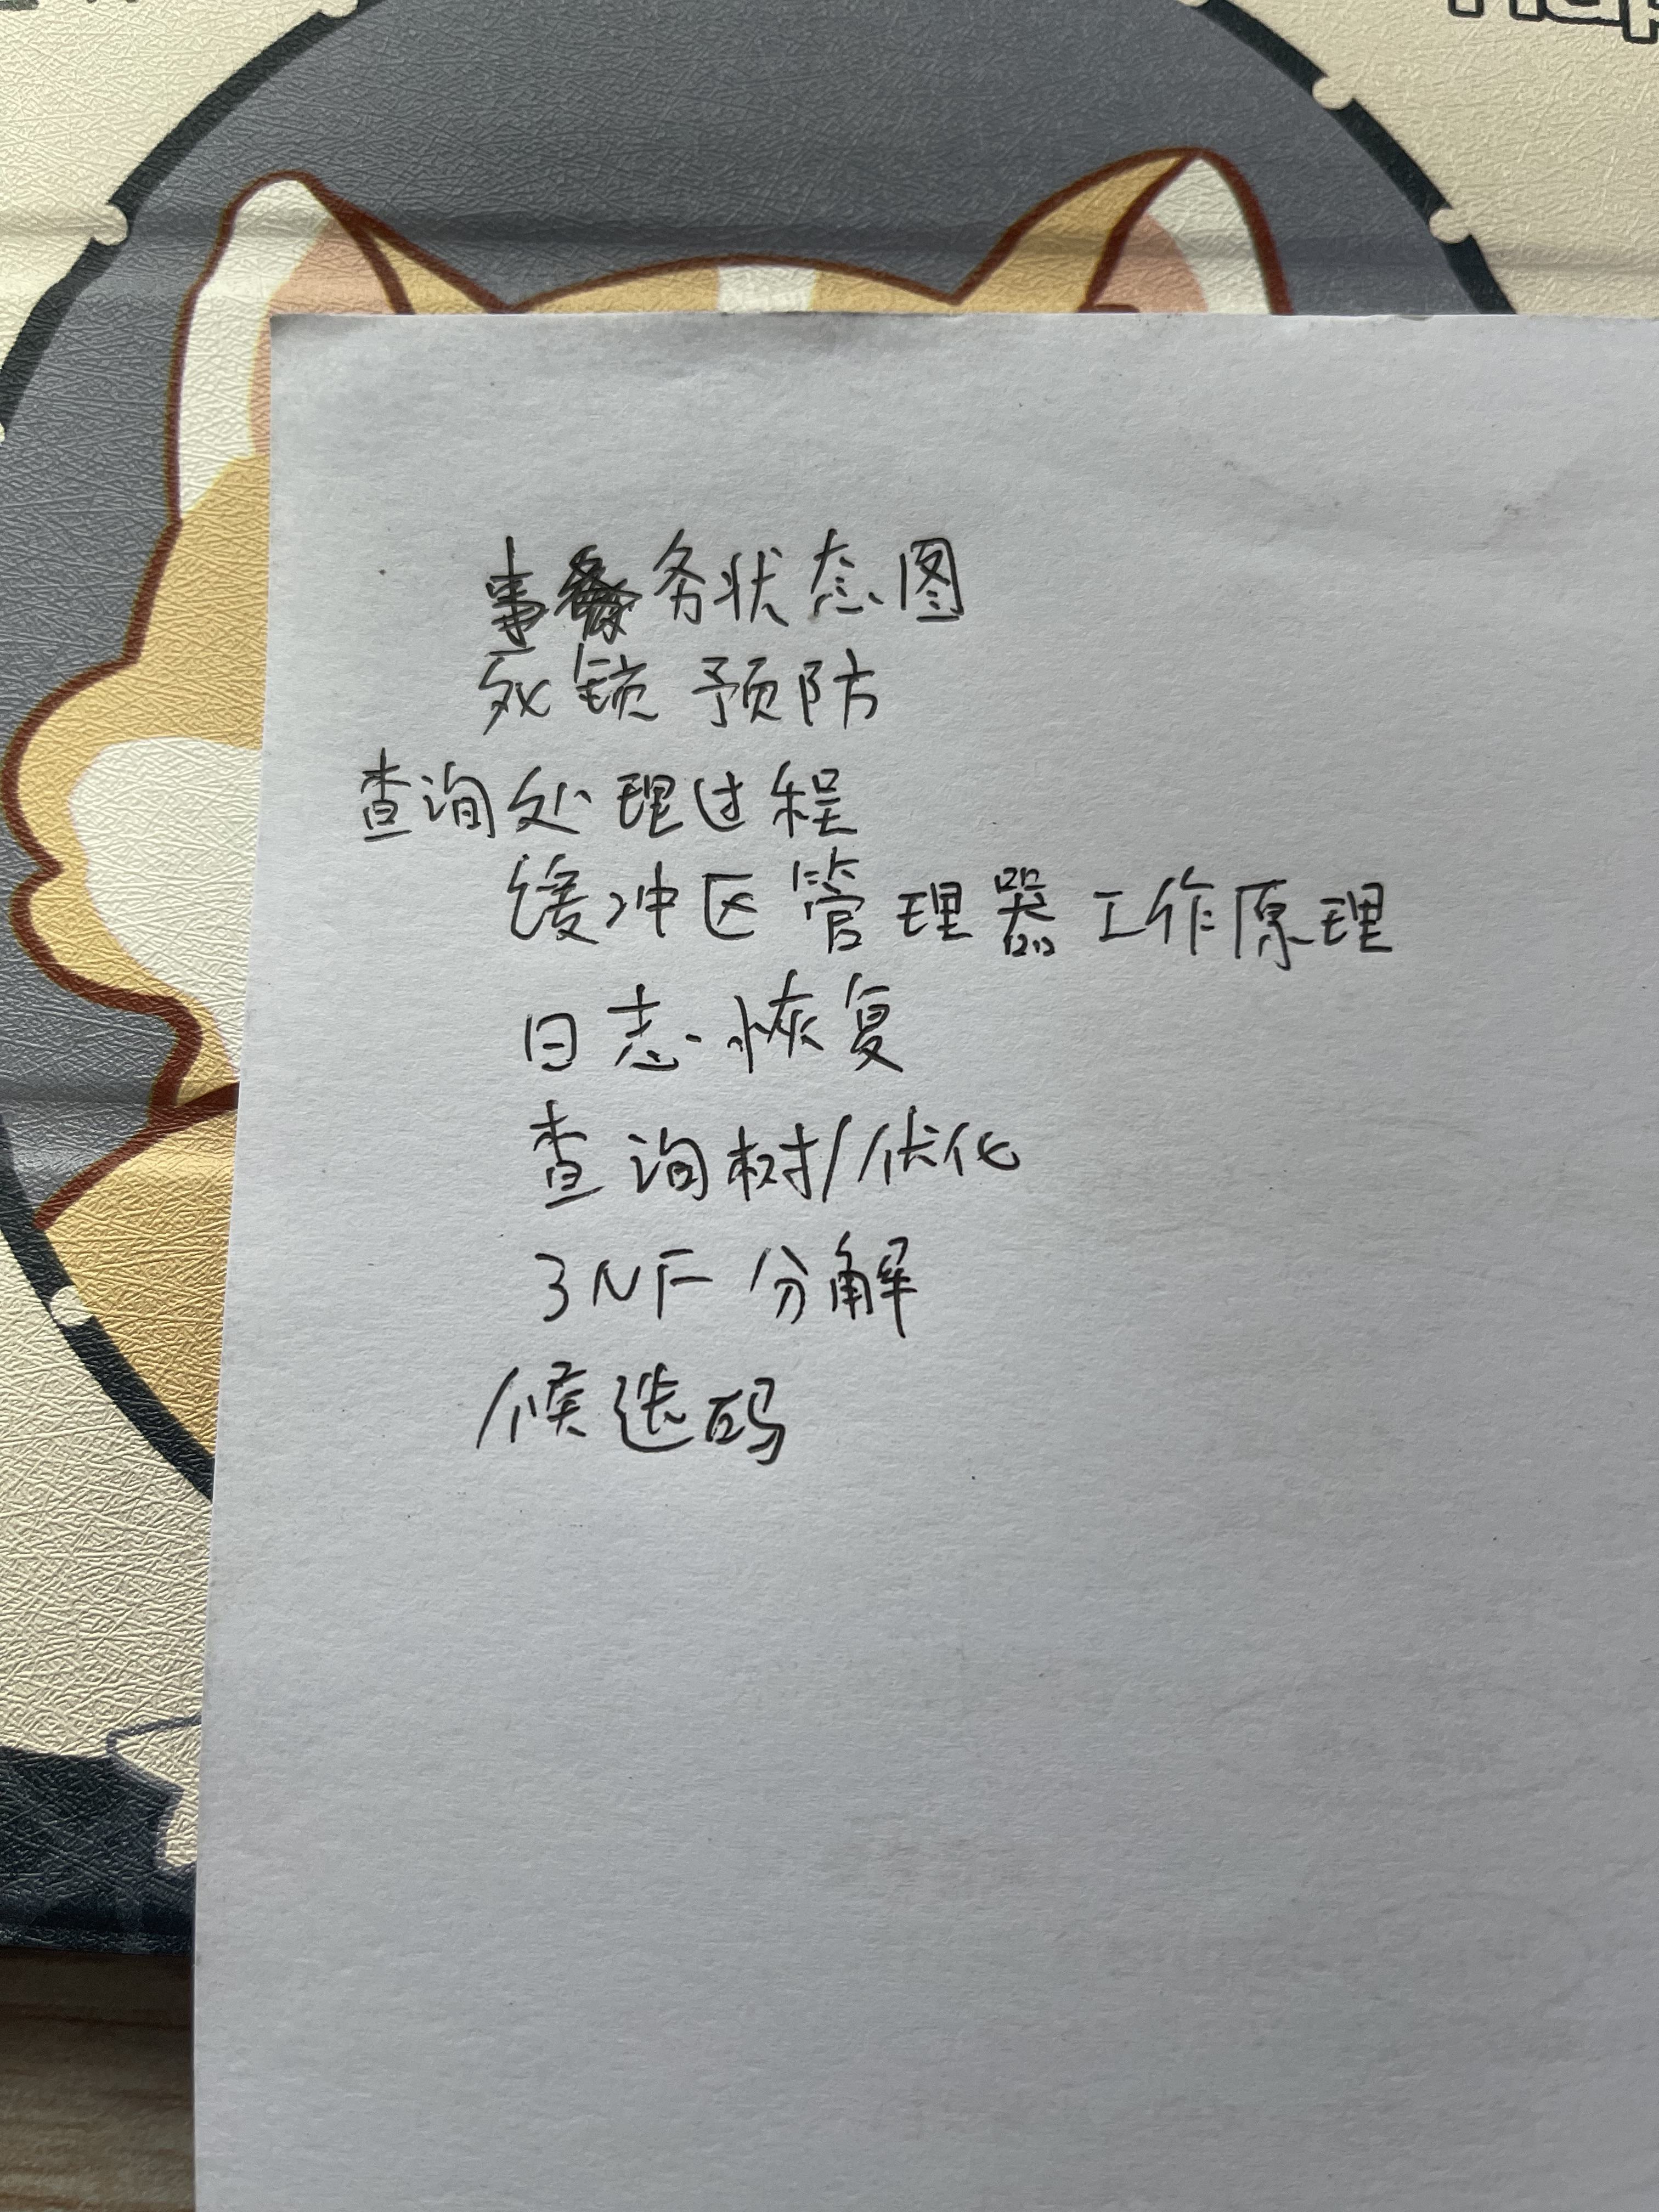 事务状态图
死锁预防
查询处理过程
缓冲区管理器工作原理
日志·恢复
查询树/优化
3NF 分解
候选码